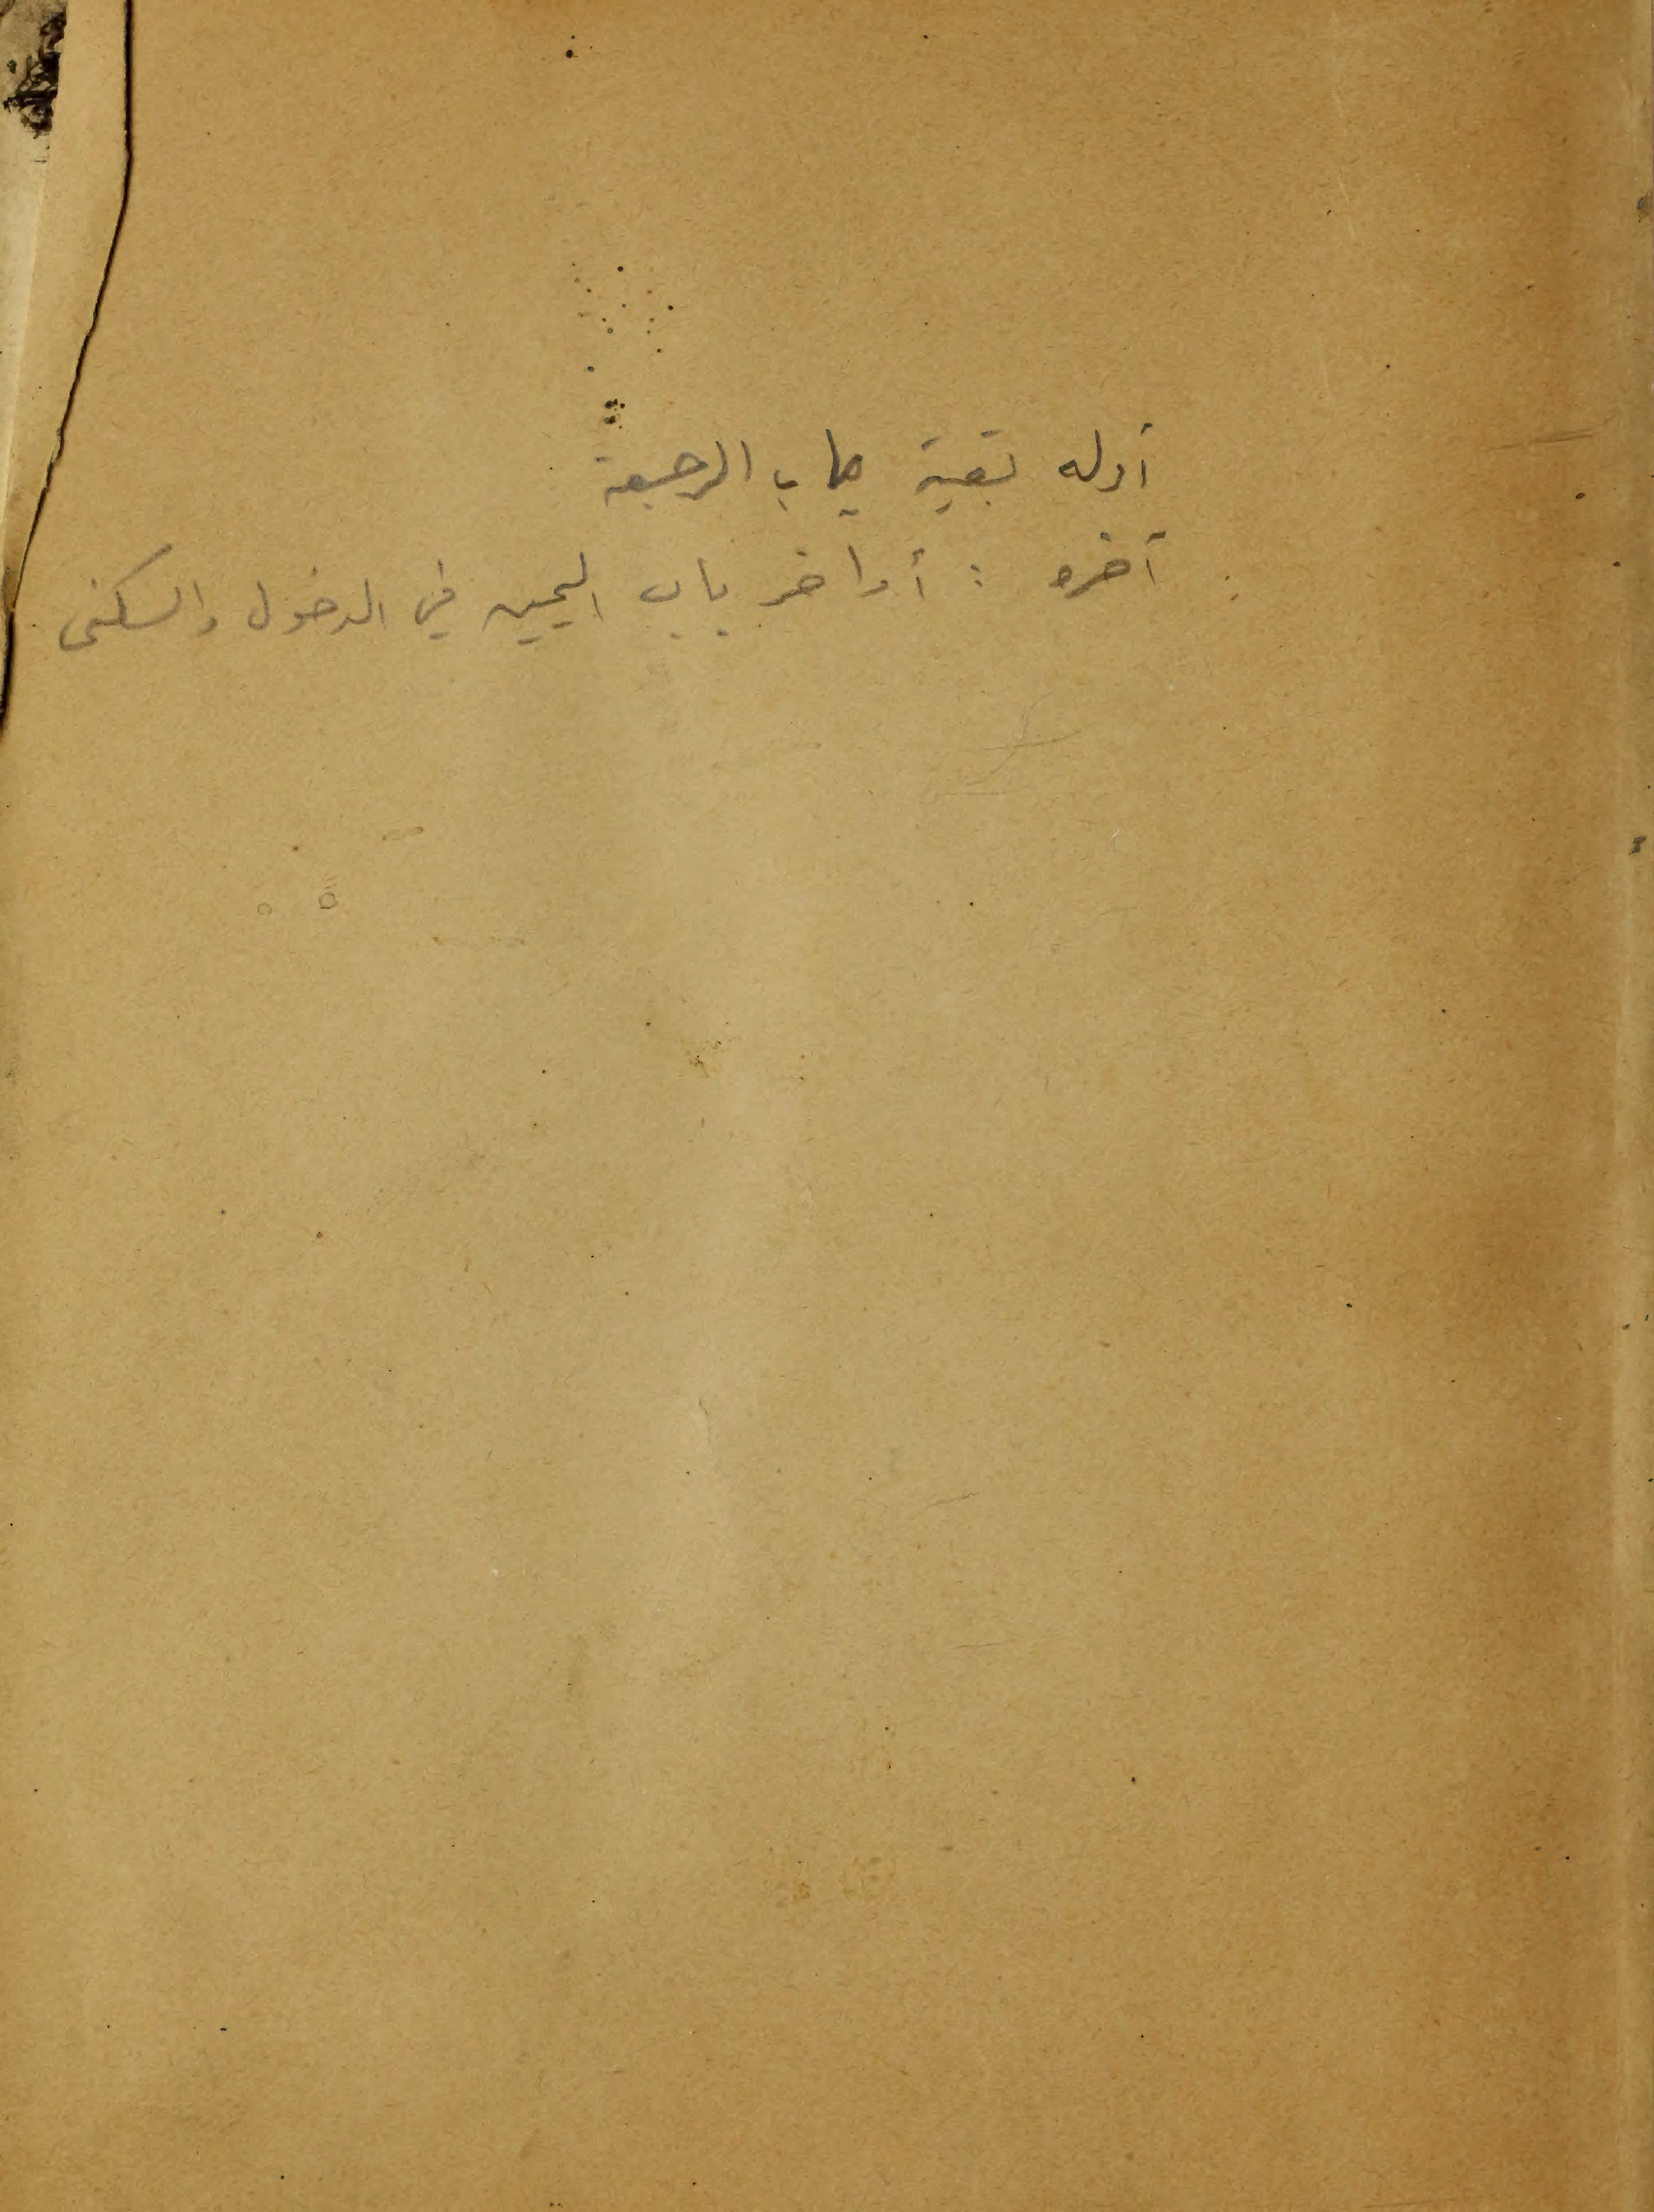 أوله بقية باب الرجعة
آخره : أواخر باب اليمين في الدخول والسكنى